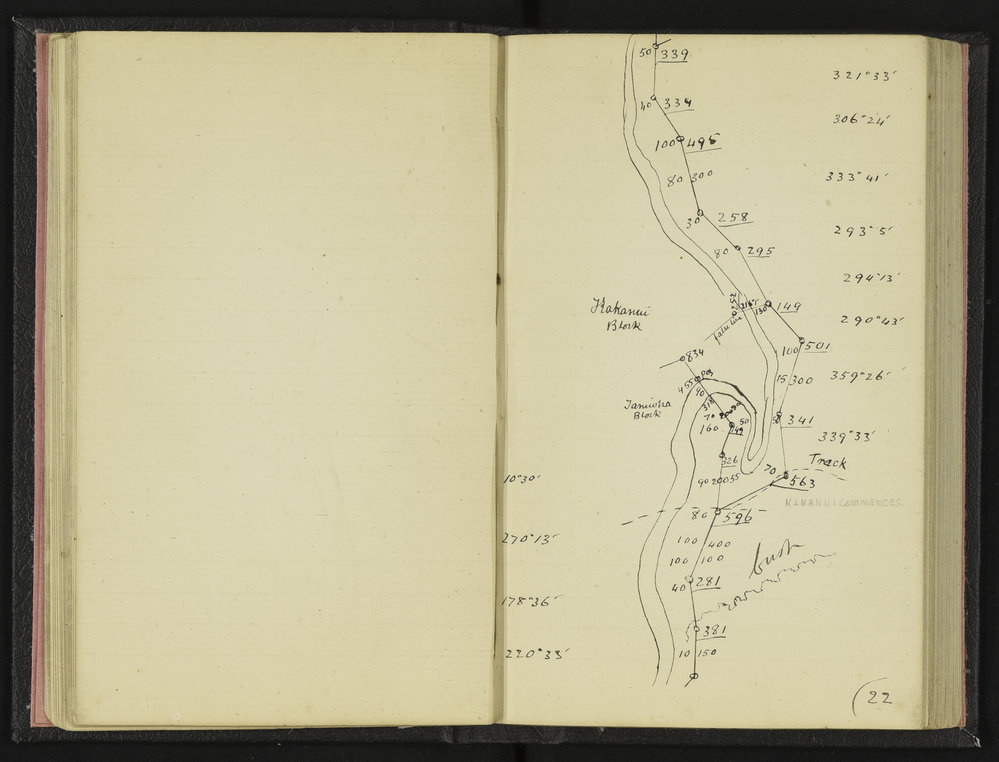 50 339
321°33'
40 334
306°24'
100 495
80 300
333°41'
30 258
293°5'
80 295
294°13'
252
216
130 149
Kakanui
Block
false line
290°43'
100 501
834
Peg
455
15 300
359°26'
90
318
Block
70
50
160
249
50 341
339°33'
326
Track
70 563
10°30'
90 200 55
KAKANUI COMMENCES.
80 596
270°13'
100 400
100 100
bush
40 281
178°36'
381
220°33'
10 150
22